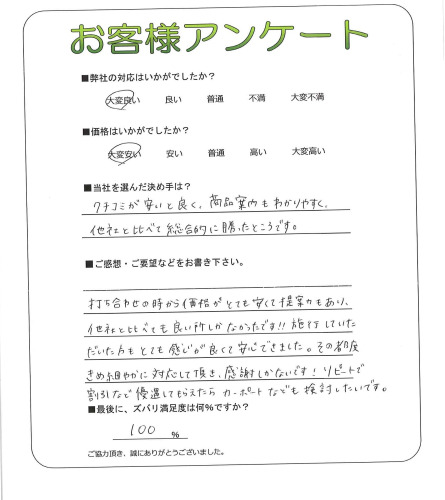 お客様アンケート
■弊社の対応はいかがでしたか?
大変良い 良い 普通 不満 大変不満
■価格はいかがでしたか?
大変安い 安い 普通 高い 大変高い
■当社を選んだ決め手は?
クチコミが安いと良く、商品案内もわかりやすく、
他社と比べて総合的に勝ったところです。
■ご感想・ご要望などをお書き下さい。
打ち合わせの時から価格がとても安くて提案力もあり、
他社と比べても良い所しかなかったです!! 施行していた
だいた方もとても感じが良くて安心できました。その都度
きめ細やかに対応して頂き、感謝しかないです! リピートで
割引など優遇してもらえたらカーポートなども検討したいです。
■最後に、ズバリ満足度は何%ですか?
100 %
ご協力頂き、誠にありがとうございました。